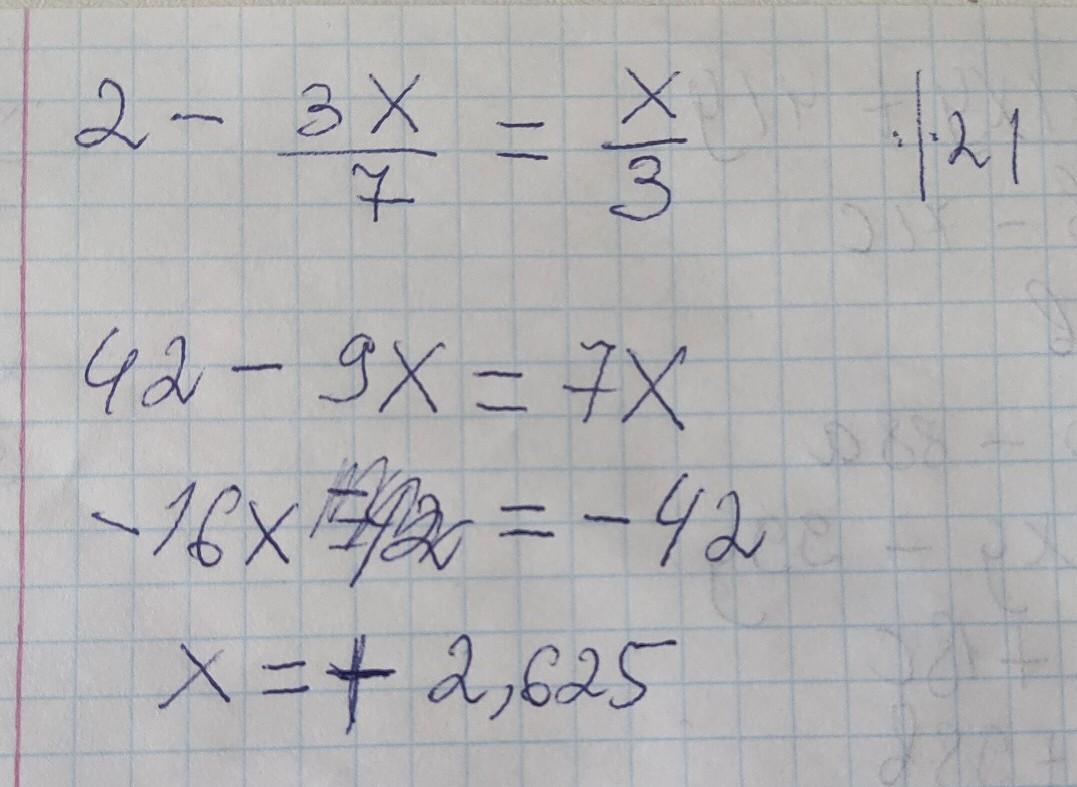 2 - 3x/7 = x/3 |·21
42 - 9x = 7x
-16x = -42
x = + 2,625